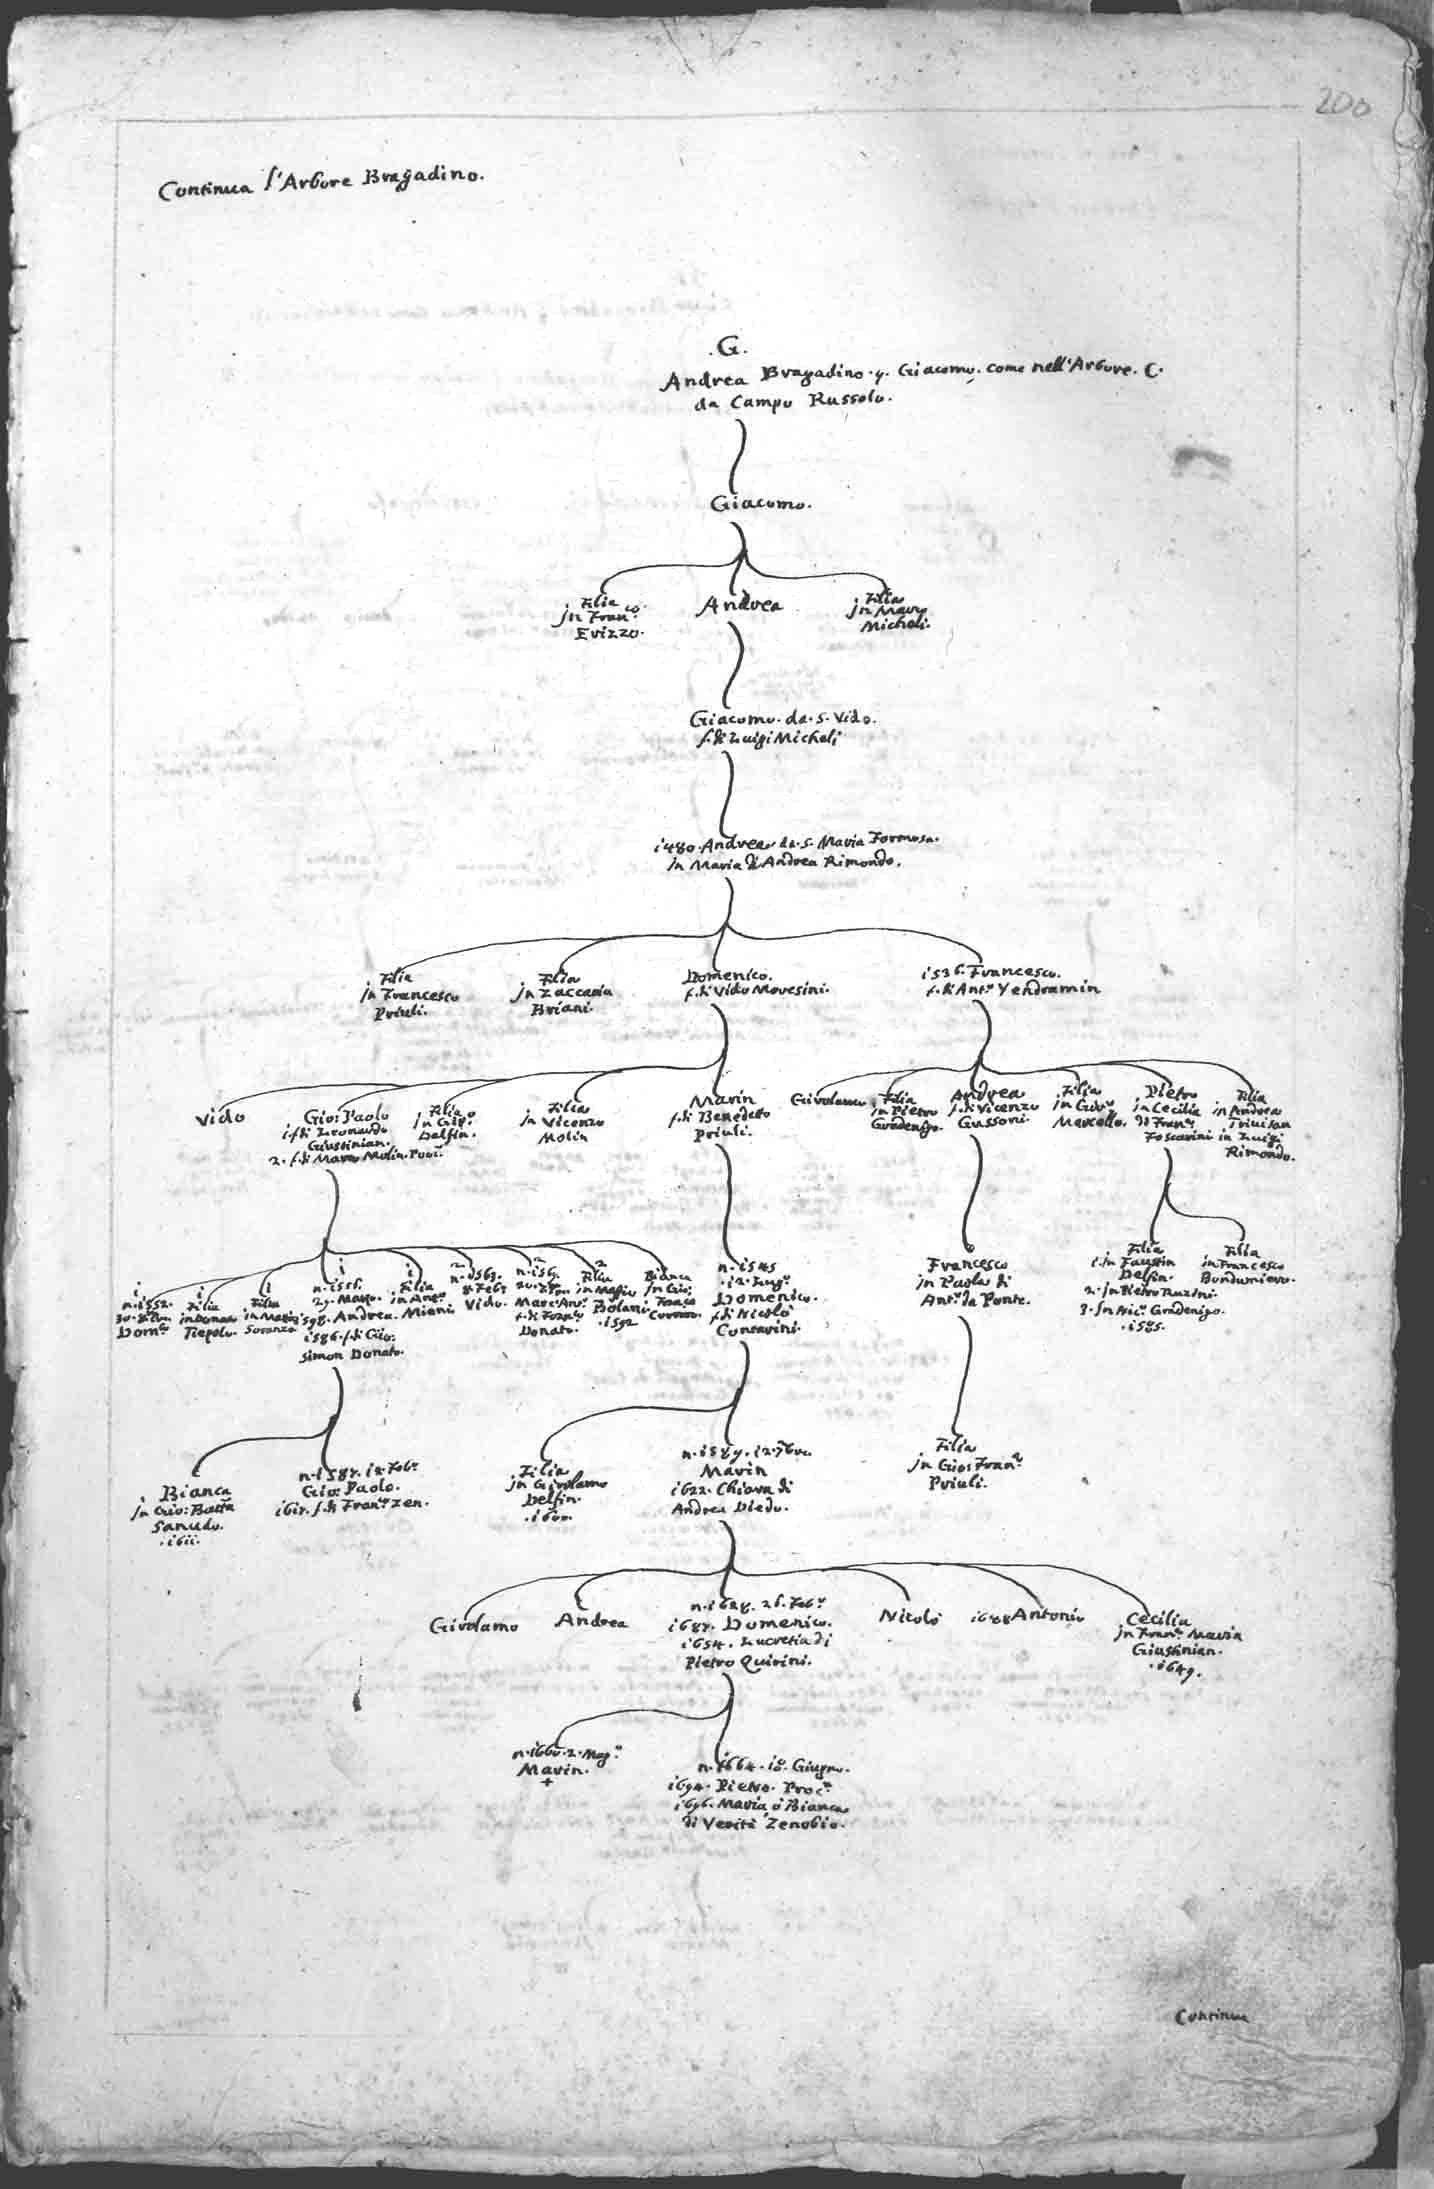 200
Continua l'Arbore Bragadino.
.G.
Andrea Bragadino. q. Giacomo. come nell'Arbore. C.
da Campo Russolo.
Giacomo.
Filia
jn Fran.co
Erizzo.
Andrea
Filia
jn Marco
Micheli.
Giacomo. da. S. Vido.
f. di Luigi Micheli
i480. Andrea. da. S. Maria Formosa.
jn Maria di Andrea Rimondo.
Filia
jn Francesco
Priuli.
Filia
jn Zaccaria
Briani.
Domenico.
f. di Vido Moresini.
i536. Francesco.
f. di Ant.o Vendramin
Vido
Gio: Paolo
i. f. di Leonardo
Giustinian.
2. f. di Marco Molin. Poci.
Filia
jn Gio.
Delfin.
Filia
jn Vicenzo
Molin
Marin
f. di Benedeto
Priuli.
Girolamo
Filia
jn Pietro
Gradenigo.
Andrea
f. di Vicenzo
Gussoni.
Filia
jn Gir.o
Marcello.
Pietro
in Cecilia
di Fran.o
Foscarini
Filia
in Andrea
Triuisan
in Luigi
Rimondo.
i
n. i552.
Dom.co
i
Filia
in Donao
Tiepolo.
i
Filia
in Marin
Soranzo
i
n. i556.
29. Marzo.
Andrea.
i586. f. di Gio:
Simon Donato.
i
Filia
in Ant.o
Miani
2
n. i563.
8. Feb.o
Vido.
2
n. i569.
Marc'Ant.o
f. di
Donato.
2
Filia
in Maffio
Bolani
. i592
Bianca
jn Gio:
Fran.co
Corner.
n. i545
. i2. Lug.o
Domenico.
f. di Nicolò
Contarini.
Francesco
jn Paola di
Ant.o da Ponte.
Filia
i. jn Faustin
Delfin.
2. jn Pietro Ruzini.
3. jn Nic.o Gradenigo.
. i585.
Filia
in Francesco
Bondumiero.
Bianca
jn Gio: Batta
Sanudo.
. i6ii.
n. i587. i2. Feb.o
Gio: Paolo.
i617. f. di Fran.o Zen.
Filia
jn Girolamo
Delfin.
. i600.
n. i589. i2. 7bre.
Marin
i622. Chiara di
Andrea Diedo.
Filia
jn Gio: Fran.o
Priuli.
Girolamo
Andrea
n. i628. 26. Feb.o
i687. Domenico.
i654. Lucretia di
Pietro Quirini.
Nicolò
i688 Antonio
Cecilia
jn Fran.o Maria
Giustinian.
. i649.
n. i660. 2. Mag.o
Marin.
+
n. i664. i0. Giugno.
i694. Pietro. Proc.r
i696. Maria ò Bianca
di Verità Zenobio.
Continua